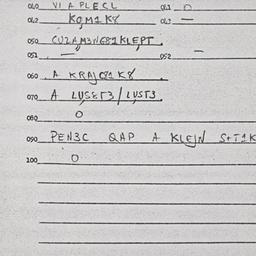 040 VI A PLECL 041 0
042 KOM1K8 043 —
050 CUZAM3NG81KLEPT.
051 — 052 —
060 A KRAJC81 K8
070 A LUSET3/LUST3
080 0
090 PEN3C QAP A KLEJN S+T1K
100 0